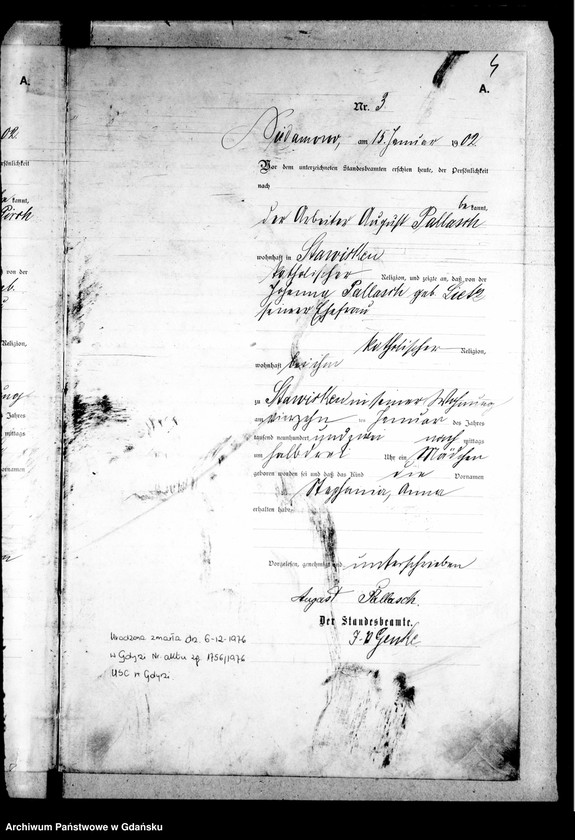 A.
4
A.
Nr. 3
am 15. Januar 1902
Vor dem unterzeichneten Standesbeamten erschien heute, der Persönlichkeit
nach
bekannt,
der Arbeiter August Pallasch
wohnhaft in Stawisken
katholischer Religion, und zeigte an, daß von der
Johanna Pallasch geb.
seiner Ehefrau
katholischer Religion,
wohnhaft bei ihm
zu Stawisken in seiner Wohnung
am Januar des Jahres
tausend neunhundert und zwei nach mittags
um halb drei Uhr ein Mädchen
geboren worden sei und daß das Kind die Vornamen
Stephania, Anna
erhalten habe
Vorgelesen, genehmigt und unterschrieben
August Pallasch.
Der Standesbeamte.
Urodzona zmarła dn. 6-12-1976
w Gdyni Nr. aktu zg. 1756/1976
USC w Gdyni
Archiwum Państwowe w Gdańsku